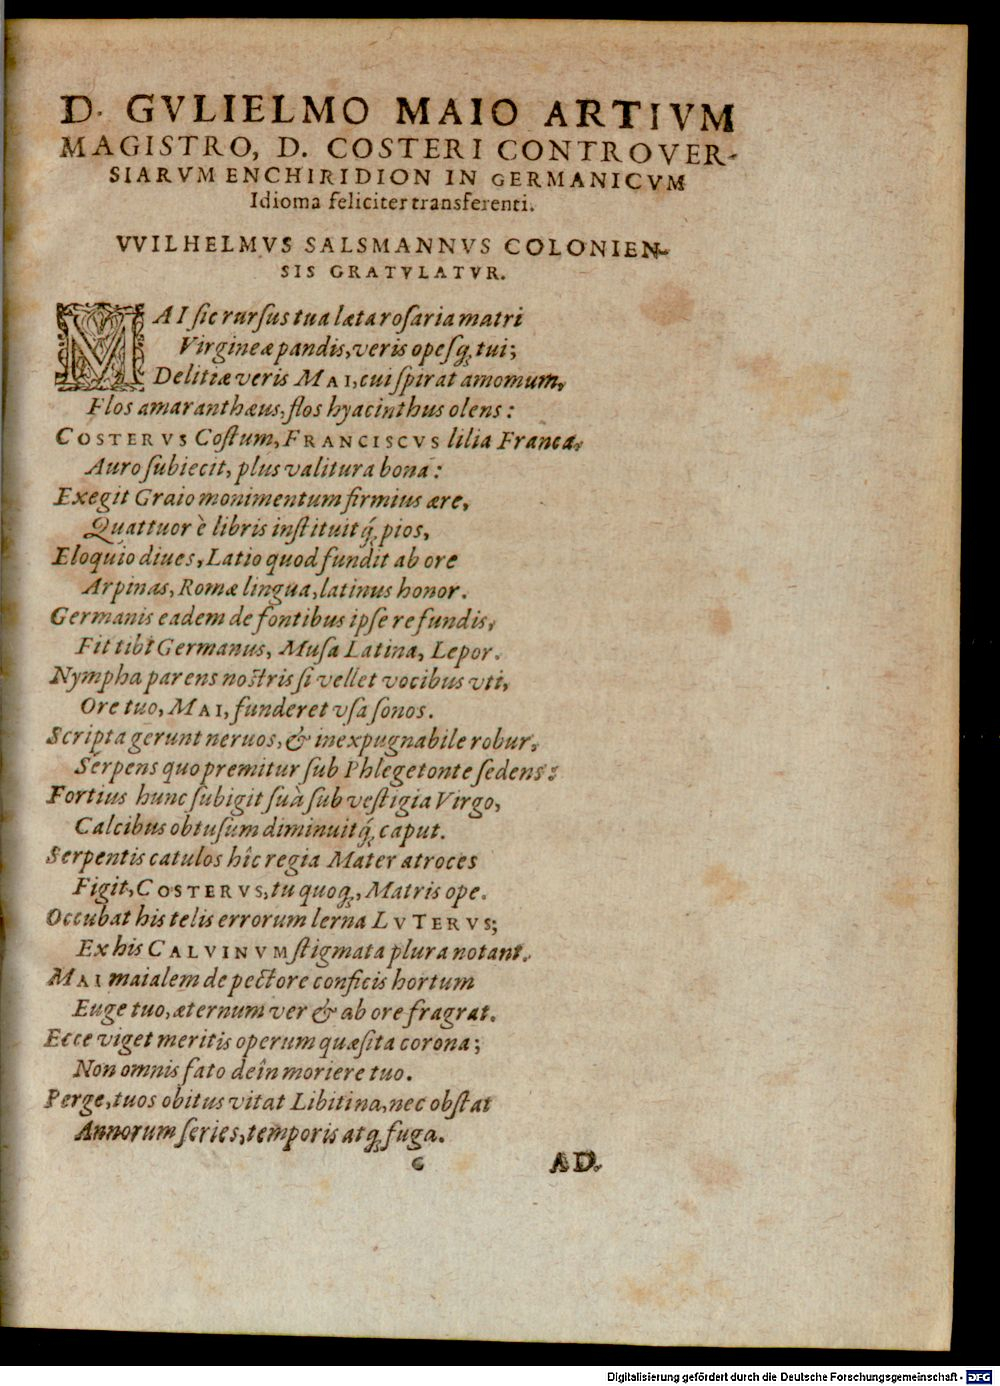 D. GVLIELMO MAIO ARTIVM
MAGISTRO, D. COSTERI CONTROVER-
SIARVM ENCHIRIDION IN GERMANICVM
Idioma feliciter transferenti.
VVILHELMVS SALSMANNVS COLONIEN-
SIS GRATVLATVR.
MAI ſic rurſus tua læta roſaria matri
Virgineæ pandis, veris opeſq́; tui;
Delitiæ veris MAI, cui ſpirat amomum,
Flos amaranthæus, flos hyacinthus olens:
COSTERVS Coſtum, FRANCISCVS lilia Franca,
Auro ſubiecit, plus valitura bona:
Exegit Graio monimentum firmius ære,
Quattuor è libris inſtituitq́; pios,
Eloquio diues, Latio quod fundit ab ore
Arpinas, Romæ lingua, latinus honor.
Germanis eadem de fontibus ipſe refundis,
Fit tibi Germanus, Muſa Latina, Lepor.
Nympha parens noſtris ſi vellet vocibus vti,
Ore tuo, MAI, funderet vſa ſonos.
Scripta gerunt neruos, & inexpugnabile robur,
Serpens quo premitur ſub Phlegetonte ſedens:
Fortius hunc ſubigit ſuà ſub veſtigia Virgo,
Calcibus obtuſum diminuitq́; caput.
Serpentis catulos hîc regia Mater atroces
Figit, COSTERVS, tu quoq;, Matris ope.
Occubat his telis errorum lerna LVTERVS;
Ex his CALVINVM ſtigmata plura notant.
MAI maialem de pectore conficis hortum
Euge tuo, æternum ver & ab ore fragrat.
Ecce viget meritis operum quæſita corona;
Non omnis fato deîn moriere tuo.
Perge, tuos obitus vitat Libitina, nec obſtat
Annorum ſeries, temporis atq; fuga.
c AD.
Digitalisierung gefördert durch die Deutsche Forschungsgemeinschaft - DFG